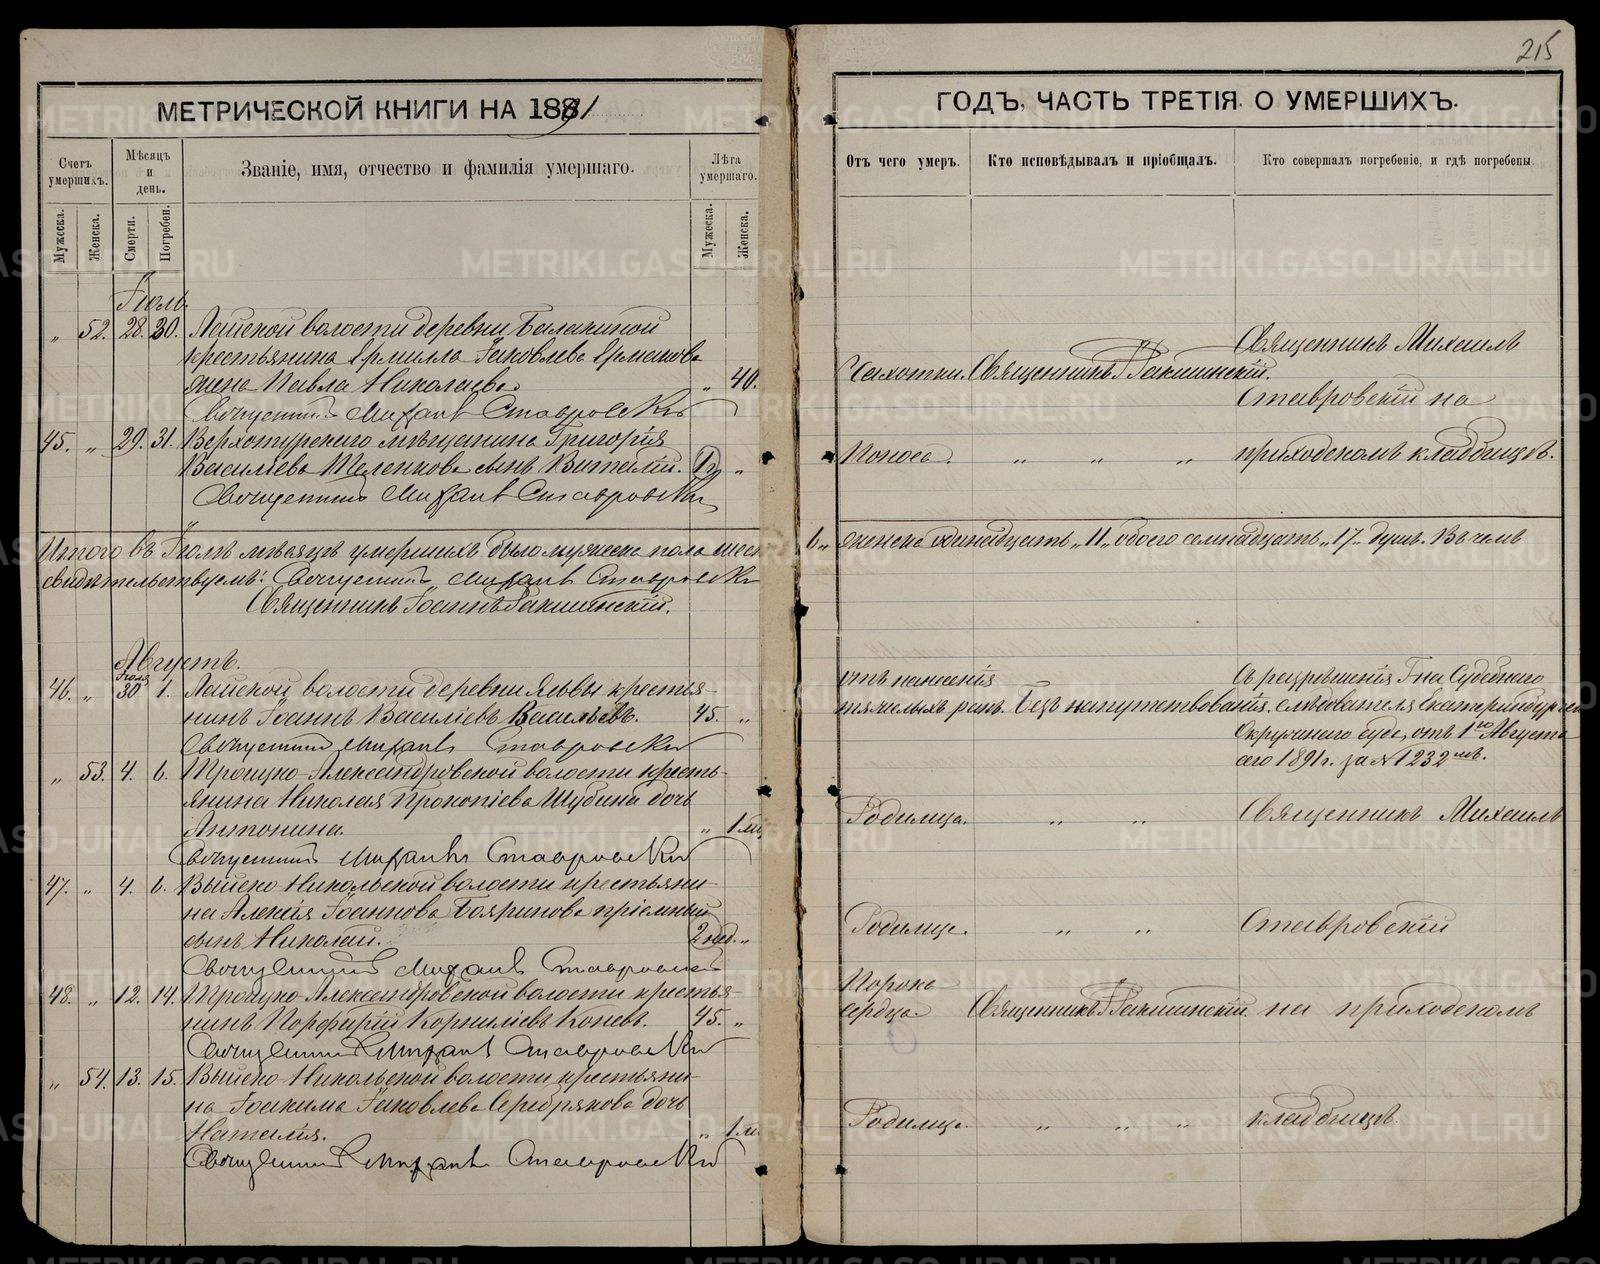 215
МЕТРИЧЕСКОЙ КНИГИ НА 1891
ГОДЪ, ЧАСТЬ ТРЕТІЯ. О УМЕРШИХЪ.
Счетъ умершихъ.
Мѣсяцъ и день.
Званіе, имя, отчество и фамилія умершаго.
Лѣта умершаго.
Отъ чего умеръ.
Кто исповѣдывалъ и пріобщалъ.
Кто совершалъ погребеніе, и гдѣ погребены.
Мужеска. Женска. Смерти. Погребен. Мужеска. Женска.
Іюль.
„ 52. 28. 30. Лайской волости деревни Балакиной
крестьянина Ермилла Іаковлева Ермакова
жена Павла Николаева. „ 40.
Чахотки. Священникъ І. Ракшинскій.
Священникъ Михаилъ
Ставровскій на
Священникъ Михаилъ Ставровскій
45. „ 29. 31. Верхотурскаго мѣщанина Григорія
Василіева Теленкова сынъ Виталій. 1 „
Поноса. „ „ „ приходскомъ кладбищѣ.
Священникъ Михаилъ Ставровскій
Итого въ Іюлѣ мѣсяцѣ умершихъ было мужеска пола шесть
6„ женска одинадцать „11„ обоего семнадцать „17„ душъ. Въ чемъ
свидѣтельствуемъ: Священникъ Михаилъ Ставровскій
Священникъ Іоаннъ Ракшинскій.
Августъ.
Іюля
46. „ 30 1. Лайской волости деревни Яльвы крестья-
нинъ Іоаннъ Василіевъ Васильевъ. 45. „
отъ нанесенія
тяжелыхъ ранъ. Безъ напутствованія.
Съ разрѣшенія Г-на Судебнаго
слѣдователя Екатеринбургск
Окружнаго суда, отъ 1го Августа
сего 1891 г. за № 1232мъ.
Священникъ Михаилъ Ставровскій
„ 53. 4. 6. Троицко-Александровской волости кресть-
янина Николая Прокопіева Шубина дочь
Антонина. „ 1 м
Родимца. „ „ Священникъ Михаилъ
Священникъ Михаилъ Ставровскій
47. „ 4. 6. Выйско-Никольской волости крестьяни-
на Алексія Іоаннова Бояринова пріемный
сынъ Николай. 2 нед. „
Родимца. „ „ Ставровскій
Священникъ Михаилъ Ставровскій
48. „ 12. 14. Троицко-Александровской волости крестья-
нинъ Порфирій Корниліевъ Коневъ. 45. „
Порока
сердца. Священникъ І. Ракшинскій на приходскомъ
Священникъ Михаилъ Ставровскій
„ 54. 13. 15. Выйско-Никольской волости крестьяни-
на Іоакима Іаковлева Серебрякова дочь
Наталія. „ 1 м
Родимца. „ „ „ кладбищѣ.
Священникъ Михаилъ Ставровскій
METRIKI.GASO-URAL.RU